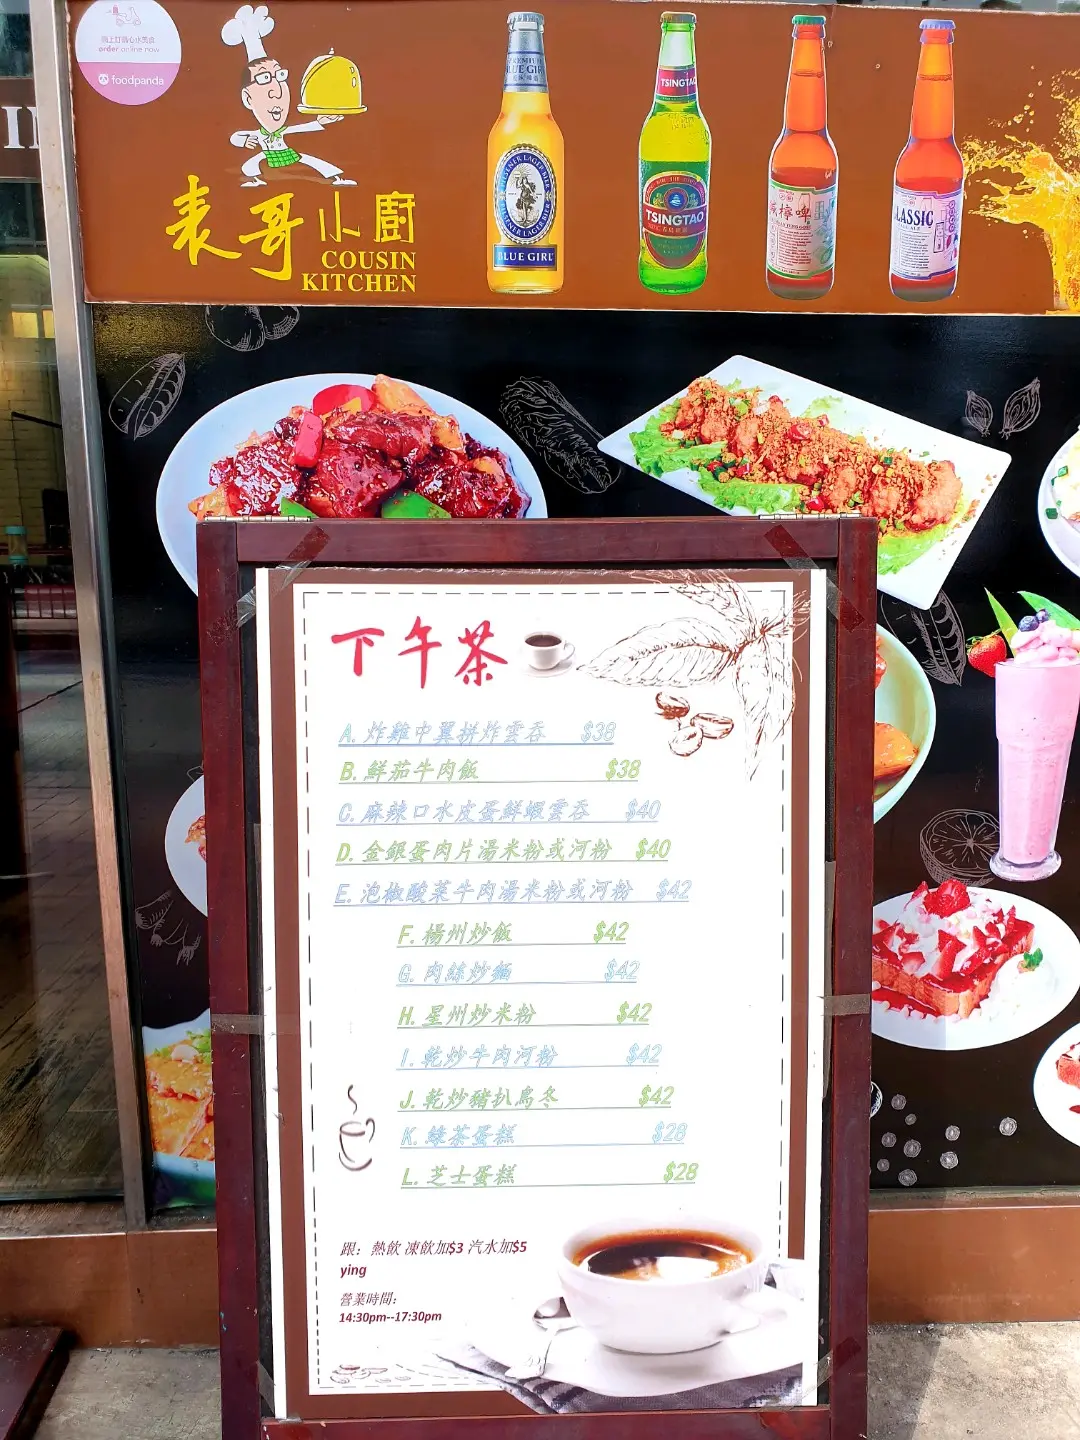 order online now
foodpanda
表哥小廚
COUSIN
KITCHEN
BLUE GIRL
PILSENER LAGER BIER
BLUE GIRL
TSINGTAO
TSINGTAO
CLASSIC
下午茶
A. 炸雞中翼拼炸雲吞 $38
B. 鮮茄牛肉飯 $38
C. 麻辣口水皮蛋鮮蝦雲吞 $40
D. 金銀蛋肉片湯米粉或河粉 $40
E. 泡椒酸菜牛肉湯米粉或河粉 $42
F. 楊州炒飯 $42
G. 肉絲炒麵 $42
H. 星州炒米粉 $42
I. 乾炒牛肉河粉 $42
J. 乾炒豬扒烏冬 $42
K. 綠茶蛋糕 $28
L. 芝士蛋糕 $28
跟: 熱飲 凍飲加$3 汽水加$5
ying
營業時間:
14:30pm--17:30pm